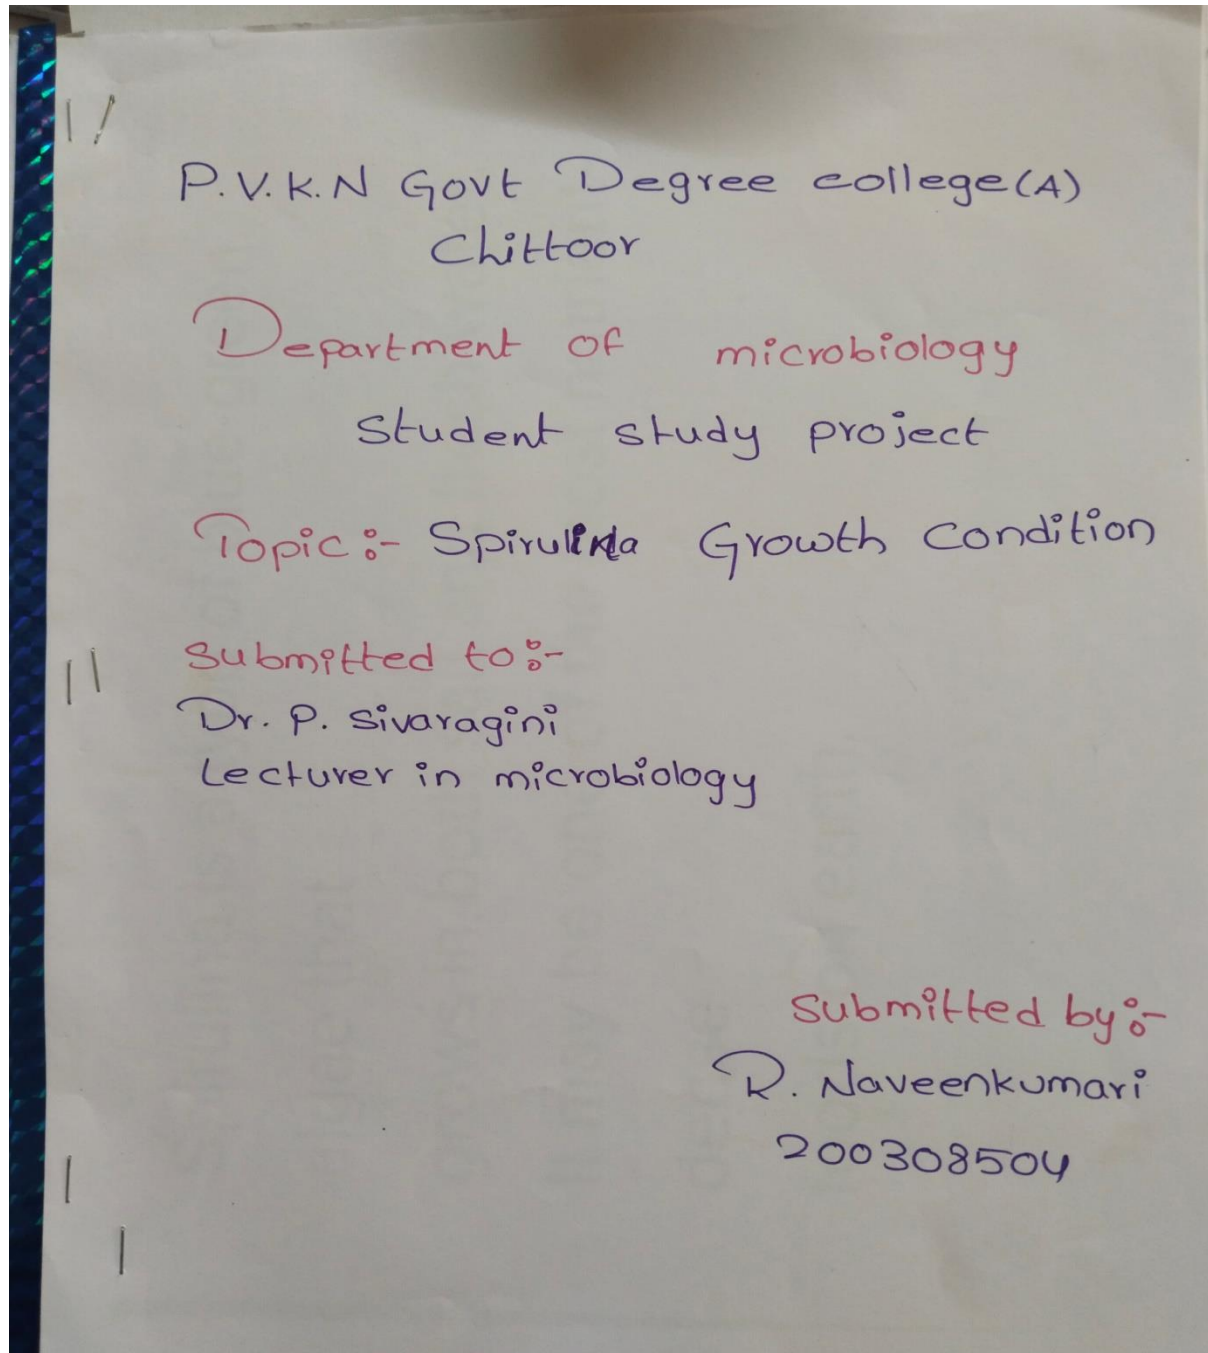 P.V.K.N Govt Degree college(A)
Chittoor
Department of microbiology
Student study project
Topic:- Spirulina Growth Condition
Submitted to:-
Dr. P. Sivaragini
Lecturer in microbiology
Submitted by:-
R. Naveenkumari
200308504